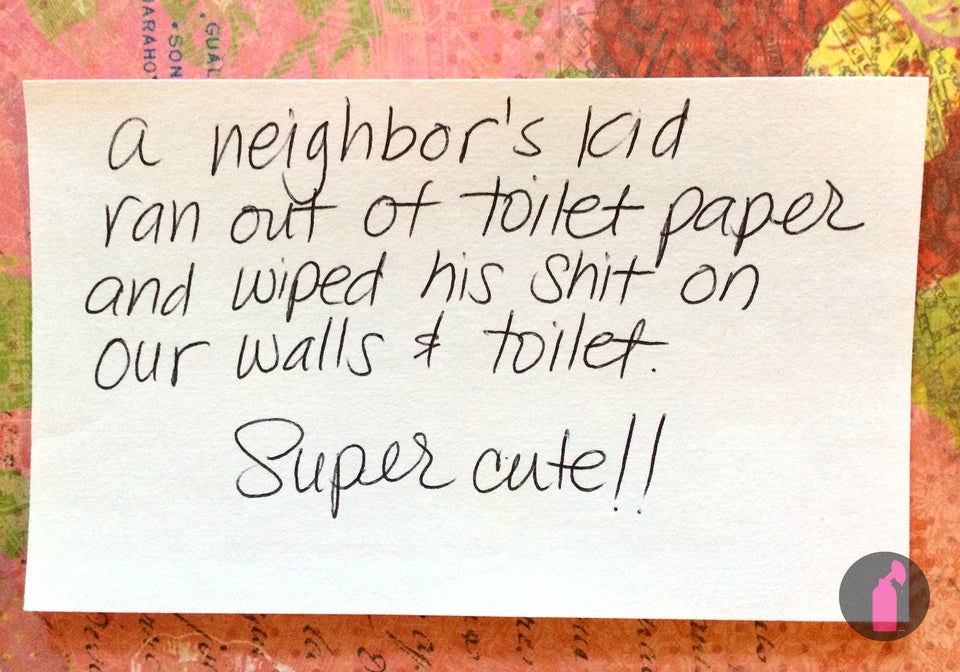 GUAL
• SON
ARAHO
a neighbor's kid
ran out of toilet paper
and wiped his shit on
our walls & toilet.
Super cute!!